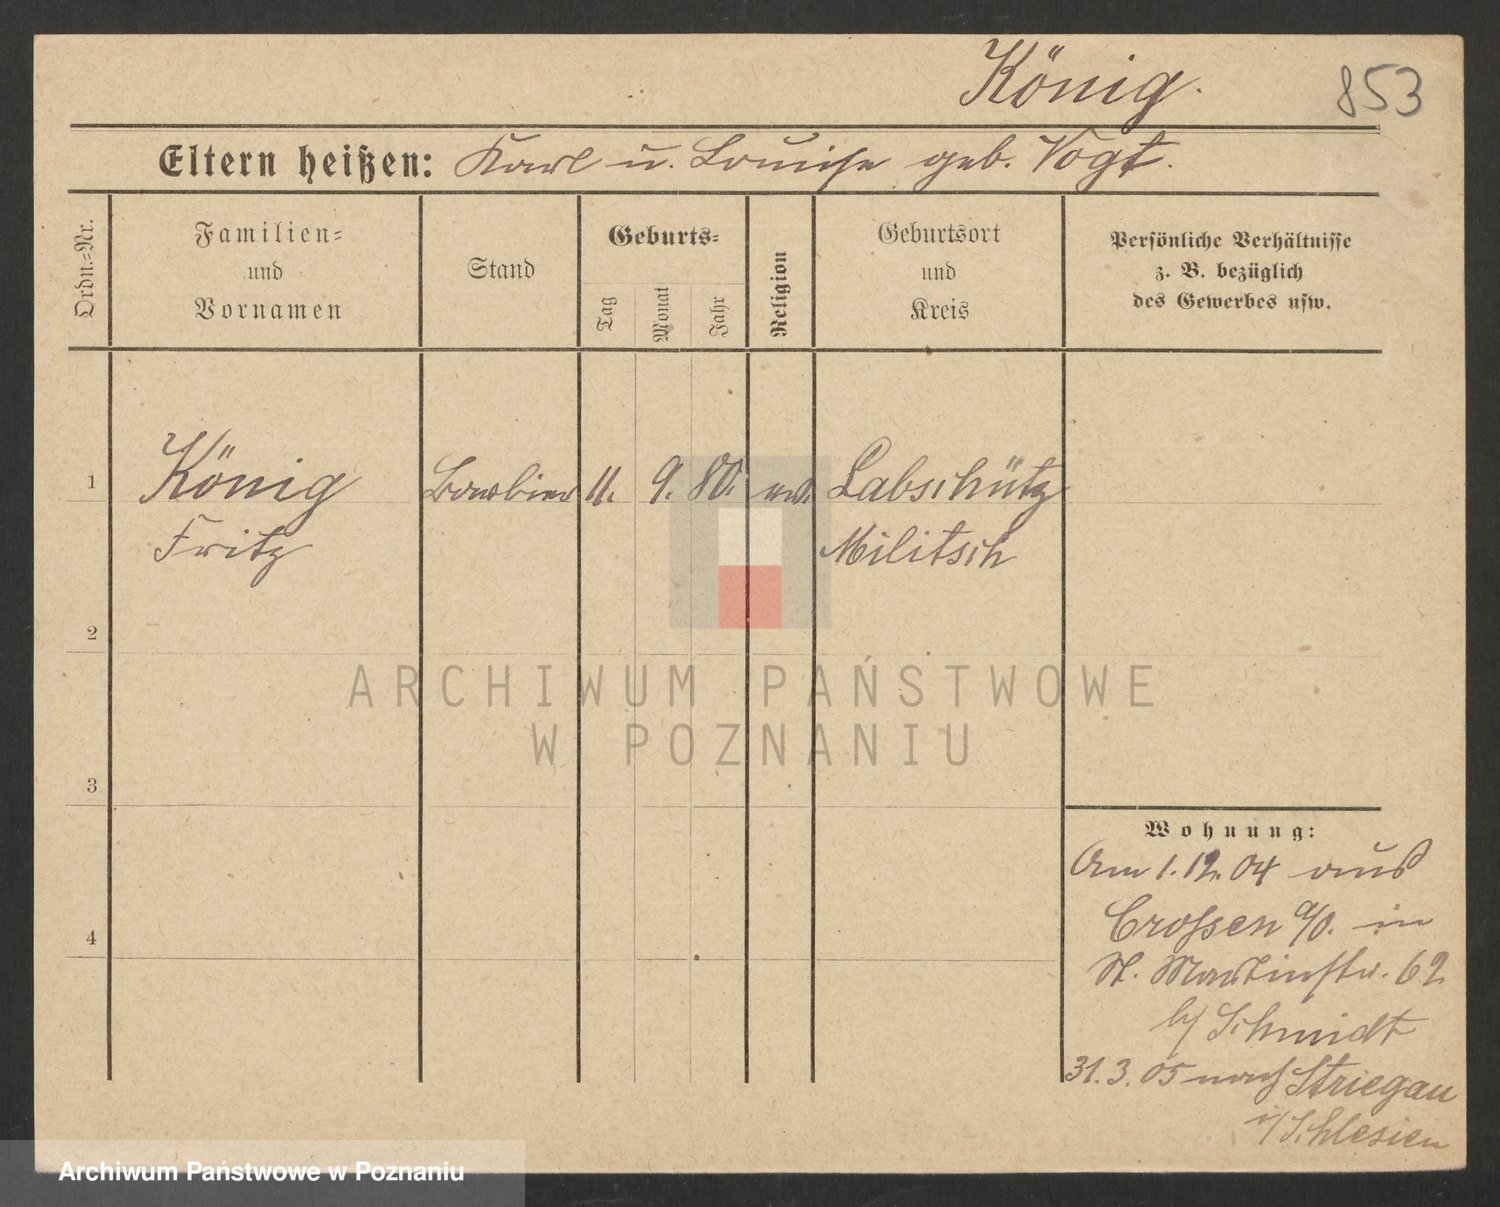 König.
853
Eltern heißen: Karl u. Louise geb. Vogt.
Ordn.=Nr.
Familien=
und
Vornamen
Stand
Geburts=
Tag
Monat
Jahr
Religion
Geburtsort
und
Kreis
Persönliche Verhältnisse
z. B. bezüglich
des Gewerbes usw.
1
König
Barbier
11.
9.
80.
ev.
Labschütz
Fritz
Militsch
2
ARCHIWUM PAŃSTWOWE
W POZNANIU
3
Wohnung:
Am 1.12.04 aus
Crossen a/O. in
St. Martinstr. 62
b/ Schmidt
4
31.3.05 nach Striegau
i/Schlesien
Archiwum Państwowe w Poznaniu